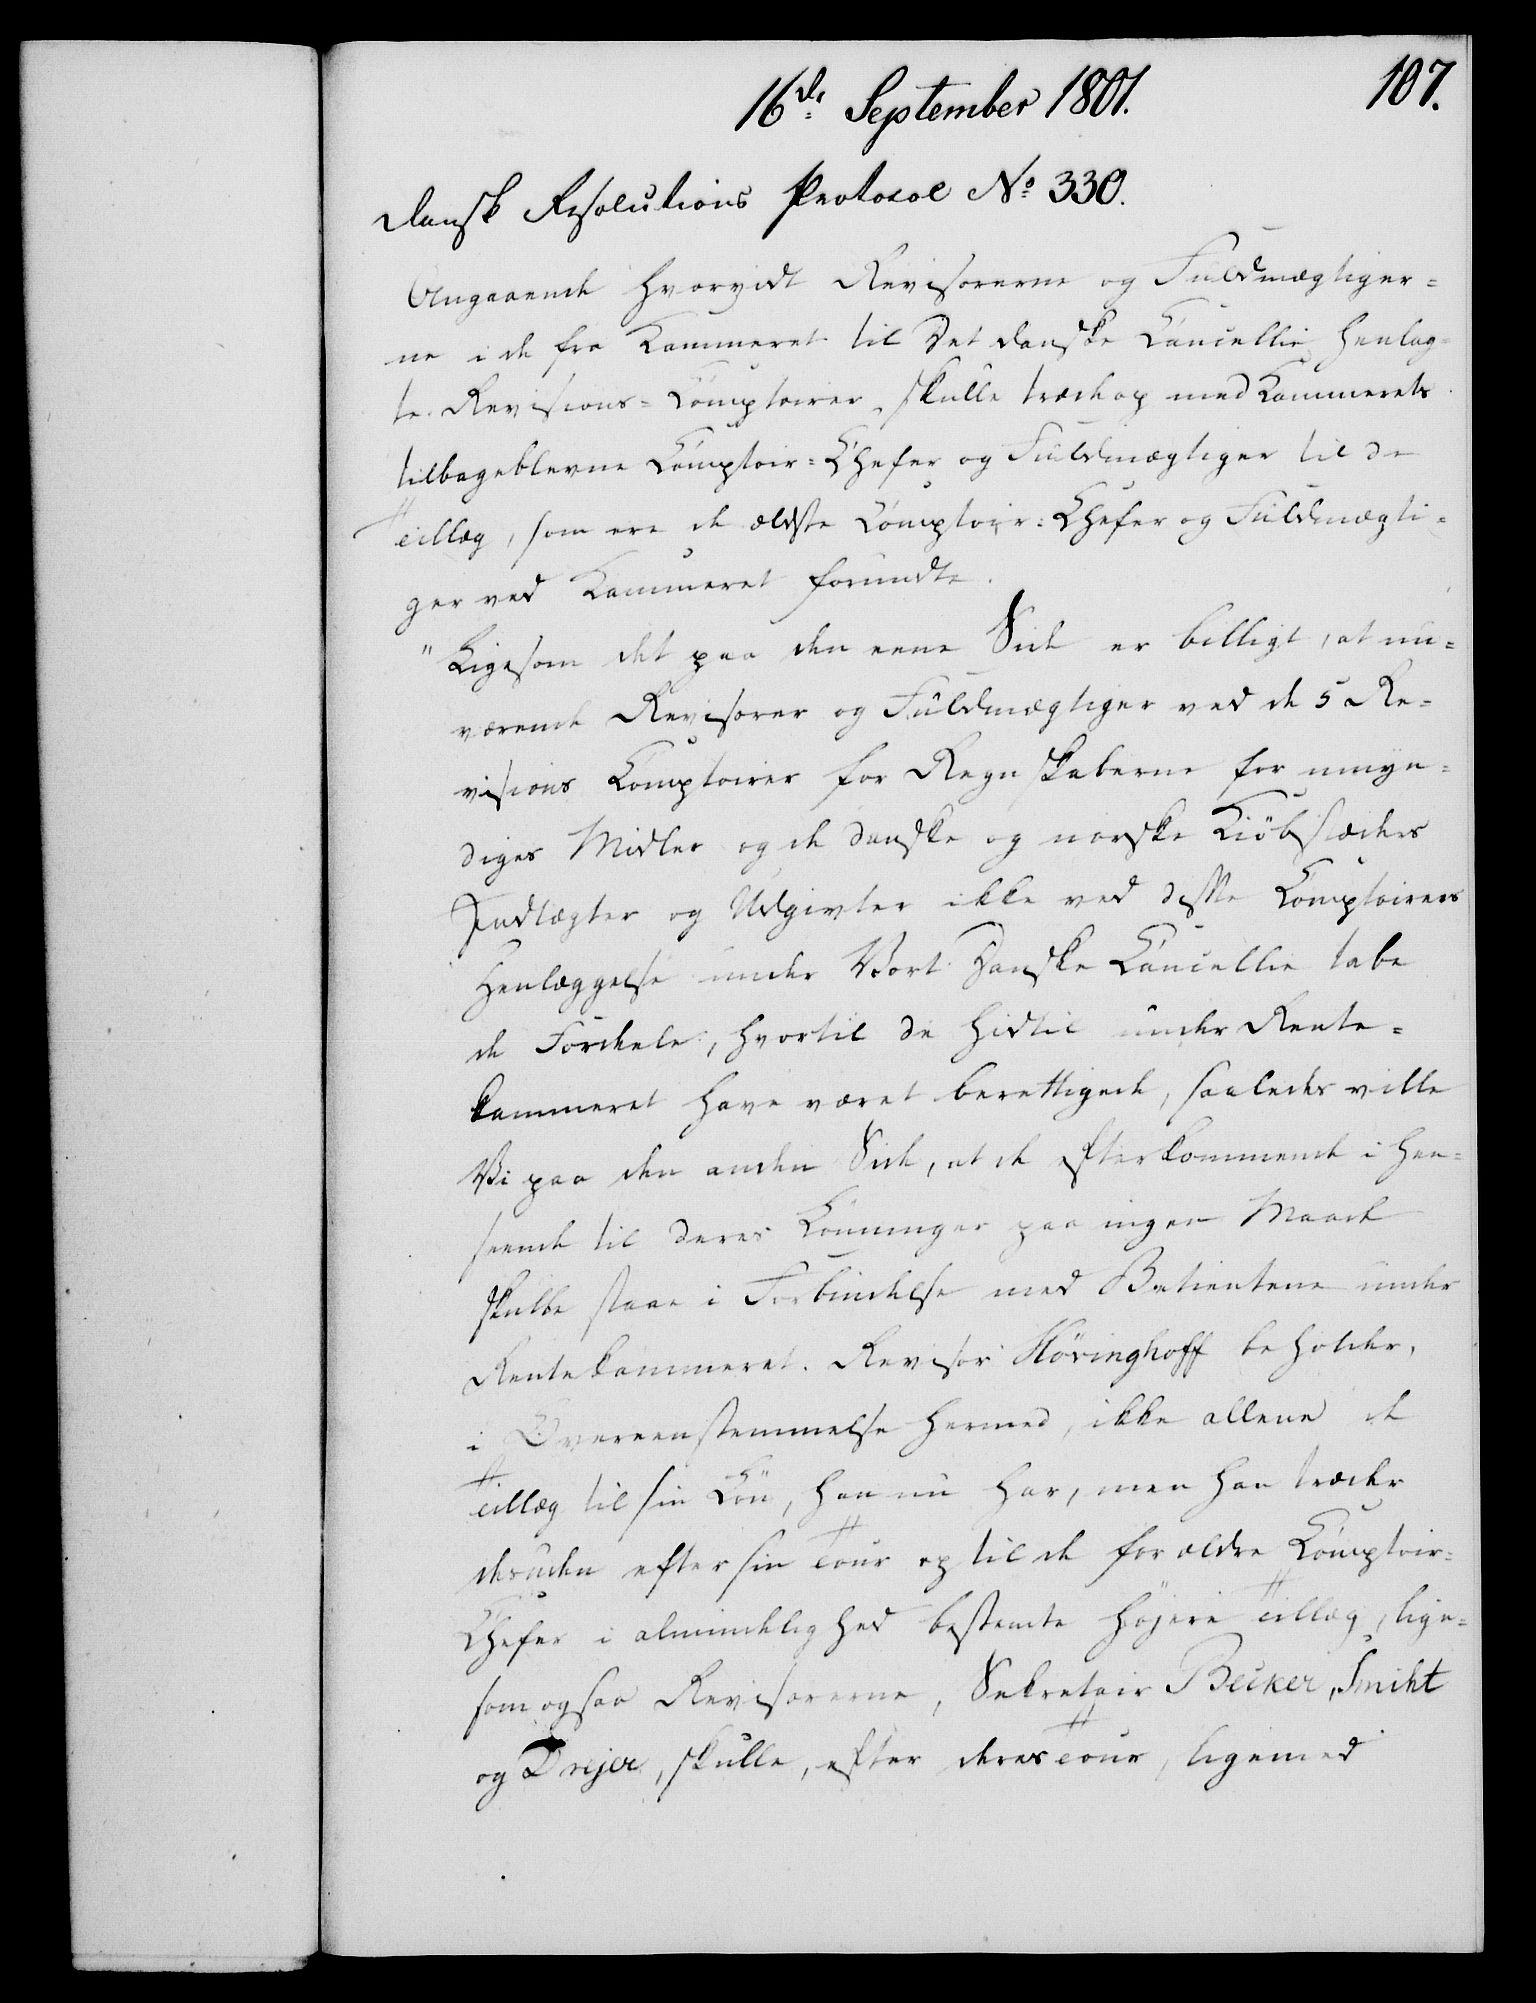 16de September 1801.
107.
Dansk Resolutions Protocol No 330.
Angaaende hvorvidt Revisorerne og Fuldmægtiger=
ne i de fra Kammeret til Det danske Cancellie henlag=
te Revisions=Comptoirer, skulle træde op med Kammerets
tilbageblevne Comptoir=Chefer og Fuldmægtiger til de
Tillæg, som ere de ældste Comptoir=Chefer og Fuldmægti=
ger ved Kammeret forundte.
" Ligesom det paa den eene Side er billigt, at nu=
værende Revisorer og Fuldmægtiger ved de 5 Re=
visions Comptoirer for Regnskaberne for umyn=
diges Midler og de danske og norske Kiöbstæders
Indtægter og Udgivter ikke ved disse Comptoirers
Henlæggelse under Vort Danske Cancellie tabe
de Fordele, hvortil de hidtil under Rente=
kammeret have været berettigede, saaledes ville
Vi paa den anden Side, at de efterkommende i Hen=
seende til deres Lönninger paa ingen Maade
skulle staae i Forbindelse med Betientene under
Rentekammeret. Revisor Hövinghoff beholder,
i Overeenstemmelse hermed, ikke allene de
Tillæg til sin Lön, han nu har, men han træder
desuden efter sin Tour op til de for ældre Comptoir=
Chefer i almindelighed bestemte höjere Tillæg, lige=
som ogsaa Revisorerne, Sekretair Becker, Smiht
og Drejer, skulle, efter deres Tour, ligemed